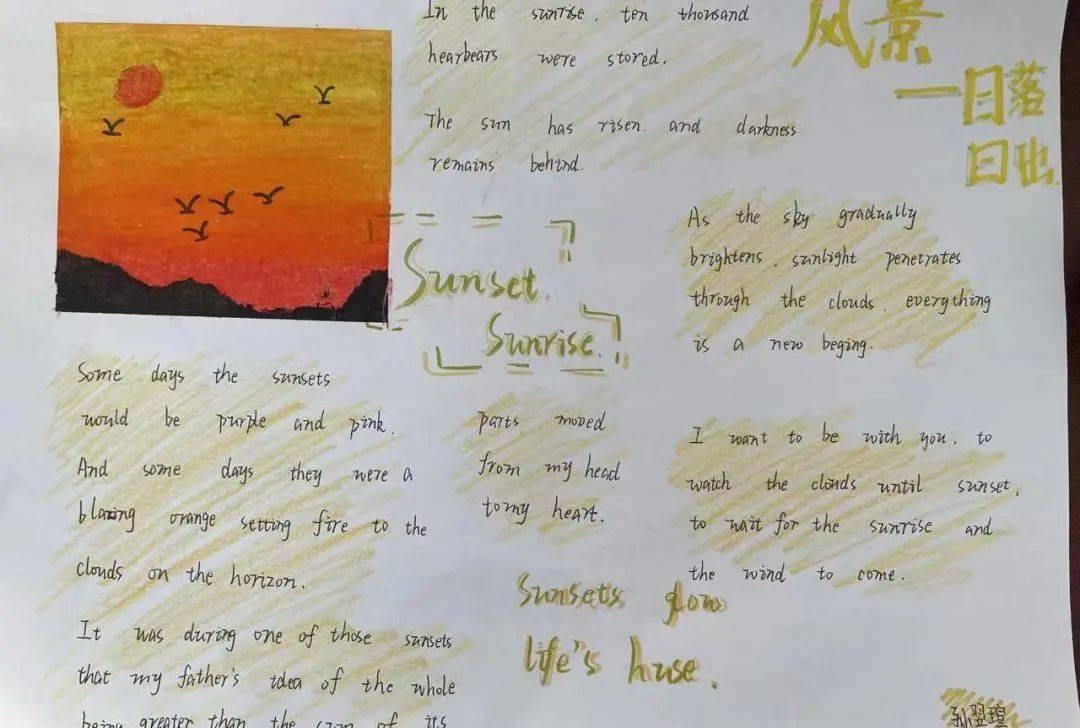 In the sunrise, ten thousand
hearbears were stored.
The sun has risen and darkness
remains behind.
风景
一日落
日出
Sunset
Sunrise.
As the sky gradually
brightens, sunlight penetrates
through the clouds, everything
is a new beging.
Some days the sunsets
would be purple and pink.
And some days they were a
blazing orange setting fire to the
clouds on the horizon.
It was during one of those sunsets
that my father's idea of the whole
being greater than the sum of its
parts moved
from my head
to my heart.
I want to be with you, to
watch the clouds until sunset,
to wait for the sunrise and
the wind to come.
Sunsets glow
life's huse.